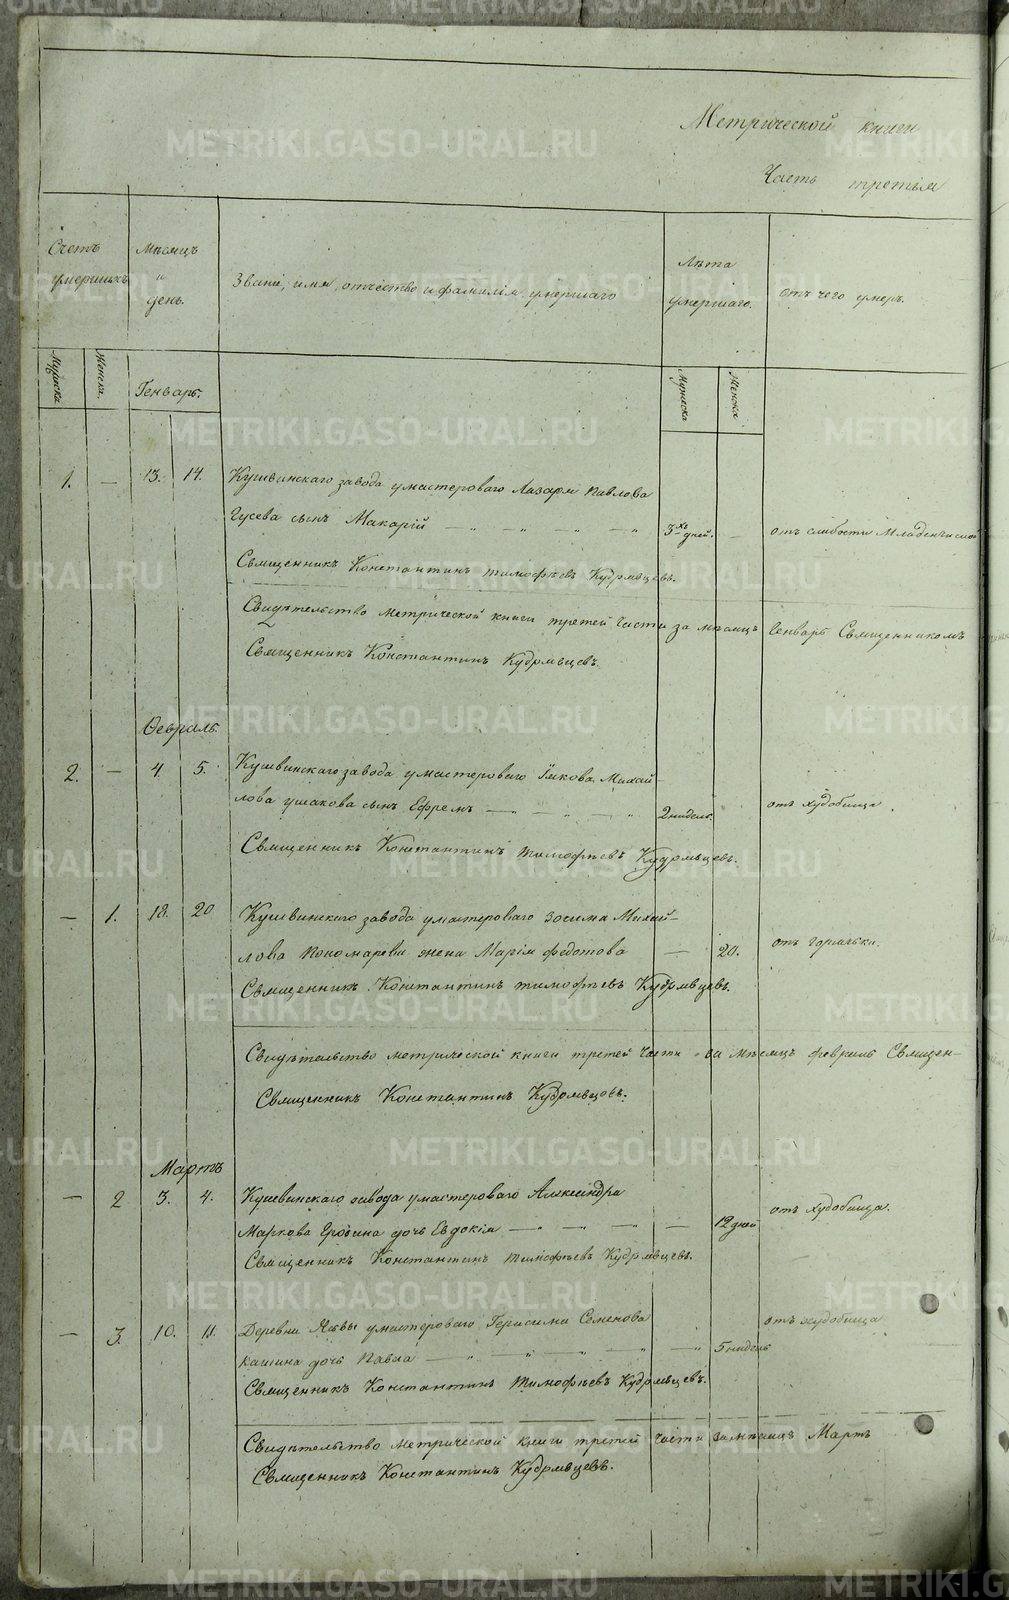 Метрической книги
Часть третья
Счетъ умершихъ
Мѣсяцъ и день.
Звані, имя, отчество и фамилія умершаго
Лѣта умершаго.
отъ чего умеръ.
Мужска
Женска.
Генварь.
Мужеска
Женска
1. — 13. 14. Кушвинскаго завода умастероваго Лазаря Павлова
Гусева сынъ Макарій — „ — „ — „ — 3хъ дней. — отъ слабости Младенческой
Священникъ Константинъ тимофѣевъ Кудрявцевъ.
Свидѣтельство метрической книги третей части за мѣсяцъ Генварь Священникомъ
Священникъ Константинъ Кудрявцевъ.
Февраль.
2. — 4. 5. Кушвинскаго завода умастероваго Iякова Михай–
лова ушакова сынъ Ефремъ — „ — „ — „ 2 нидель. отъ худобища
Священникъ Константинъ тимофѣевъ Кудрявцевъ.
— 1. 18. 20 Кушвинскаго завода умастероваго зосима Михай–
лова пономарева жена Марія федотова — 20. отъ горячьки.
Священникъ Константинъ тимофѣевъ Кудрявцевъ.
Свидѣтельство метрической книги третей части за мѣсяцъ февраль Священ–
Священникъ Константинъ Кудрявцовъ.
Мартъ
— 2 3. 4. Кушвинскаго завода умастероваго Александра
Маркова Еровина дочь Евдокія — „ — „ — 12 дней отъ худобища.
Священникъ Константинъ тимофѣевъ Кудрявцевъ.
— 3. 10. 11. Деревни умастероваго Герасима Семенова
кашина дочь Павла — „ — „ — „ — 5 нидель отъ худобища
Священникъ Константинъ тимофѣевъ Кудрявцевъ.
Свидѣтельство метрической книги третей части за мѣсяцъ Мартъ
Священникъ Константинъ Кудрявцевъ.
METRIKI.GASO-URAL.RU